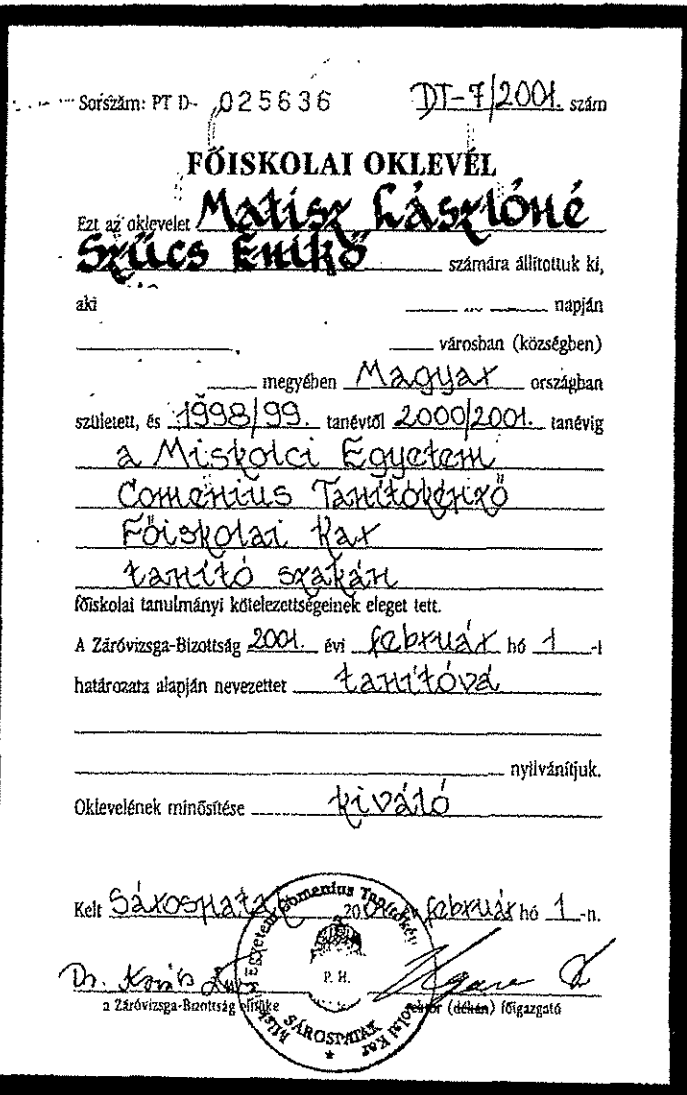 Sorszám: PT D- 025636 DT-7/2001. szám
FŐISKOLAI OKLEVÉL
Ezt az oklevelet Matisz Lászlóné
Szűcs Enikő számára állítottuk ki,
aki napján
városban (községben)
megyében Magyar országban
született, és 1998/99. tanévtől 2000/2001. tanévig
a Miskolci Egyetem
Comenius Tanítóképző
Főiskolai Kar
tanító szakán
főiskolai tanulmányi kötelezettségeinek eleget tett.
A Záróvizsga-Bizottság 2001. évi február hó 1 -i
határozata alapján nevezettet tanítóvá
nyilvánítjuk.
Oklevelének minősítése kiváló
Kelt Sárospatak 2001 február hó 1 -n.
Miskolci Egyetem Comenius Tanítóképző Főiskolai Kar
P. H.
SÁROSPATAK
Dr.
a Záróvizsga-Bizottság elnöke rektor (dékán) főigazgató